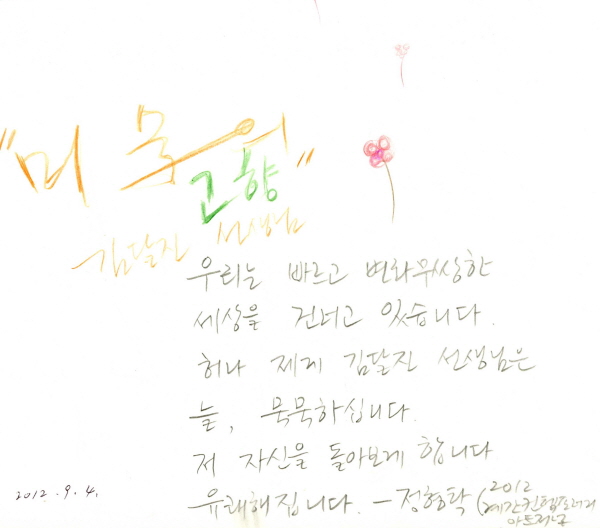 "미술의
고향"
김달진 선생님
우리는 빠르고 변화무쌍한
세상을 건너고 있습니다.
허나 제게 김달진 선생님은
늘, 묵묵하십니다.
저 자신을 돌아보게 합니다
유쾌해집니다. - 정형탁 (2012
계간컨템포러리
2012. 9. 4.